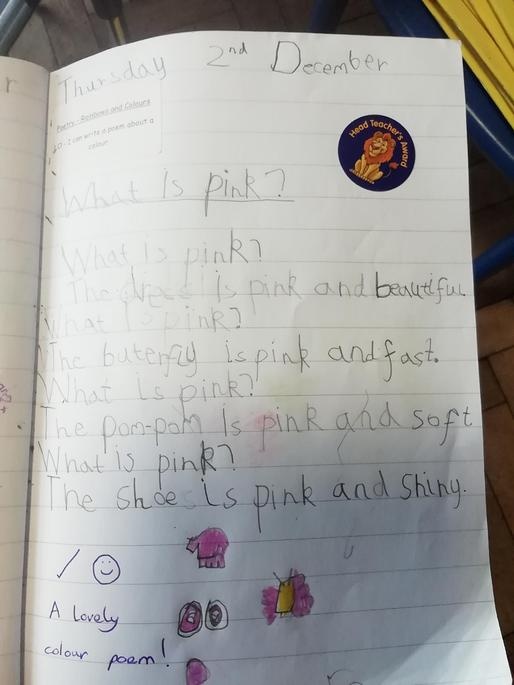 Thursday 2nd December
Poetry - Rainbows and Colours
LO - I can write a poem about a
colour.
Head Teacher's Award
What is pink?
What is pink?
The dress is pink and beautiful
What is pink?
The buterfly is pink and fast.
What is pink?
The pom-pom is pink and soft
What is pink?
The shoe is pink and shiny.
A lovely
colour poem!